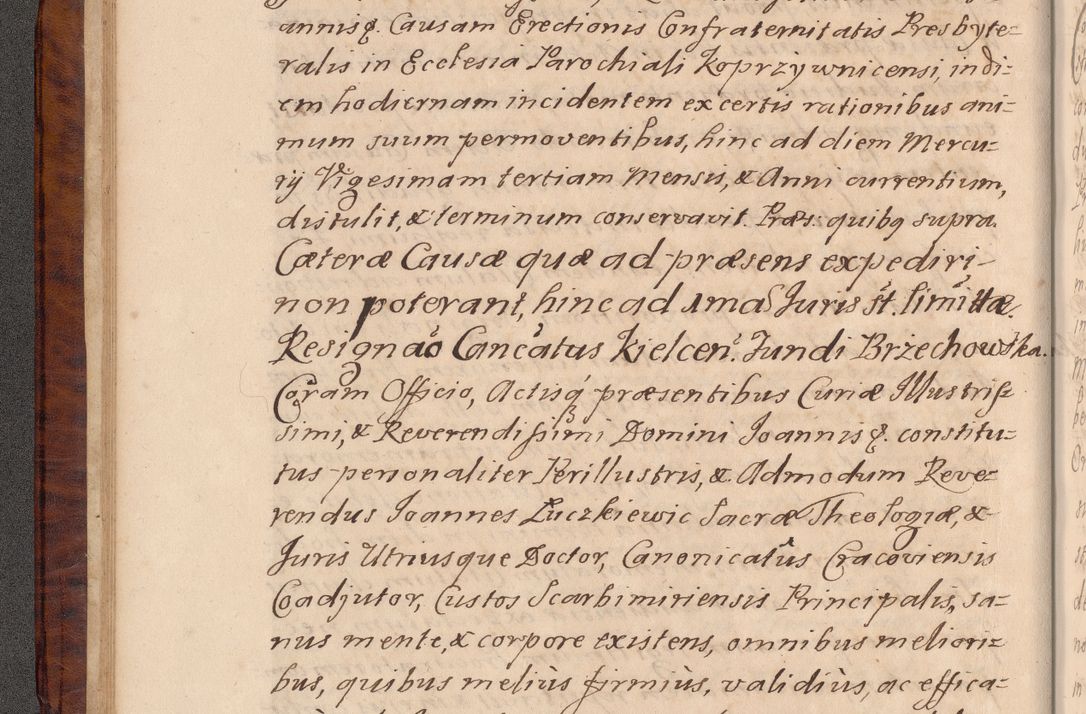 annisq. Causam Erectionis Confraternitatis Presbyte=
ralis in Ecclesia Parochiali Koprzywnicensi, in di=
em hodiernam incidentem ex certis rationibus ani=
mum suum permoventibus, hinc ad diem Mercu=
rij Vigesimam tertiam Mensis, & Anni currentium,
distulit, & terminum conservavit. Præs: quibq supra.
Cæteræ Causæ quæ ad præsens expediri
non poterant, hinc ad 1mā Juris st. limittæ.
Resignāo Cancatus Kielcen. Fundi Brzechowska.
Coram Officio, Actisq præsentibus Curiæ Illustris=
simi, & Reverendissimi Domini Joannisq. constitu=
tus personaliter Perillustris, & Admodum Reve=
rendus Joannes Łuczkiewic Sacræ Theologiæ, &
Juris Utriusque Doctor, Canonicatûs Cracoviensis
Coadjutor, Custos Scarbimiriensis Principalis, sa=
nus mente, & corpore existens, omnibus meliori=
bus, quibus meliùs firmiùs, validiùs, ac effica=